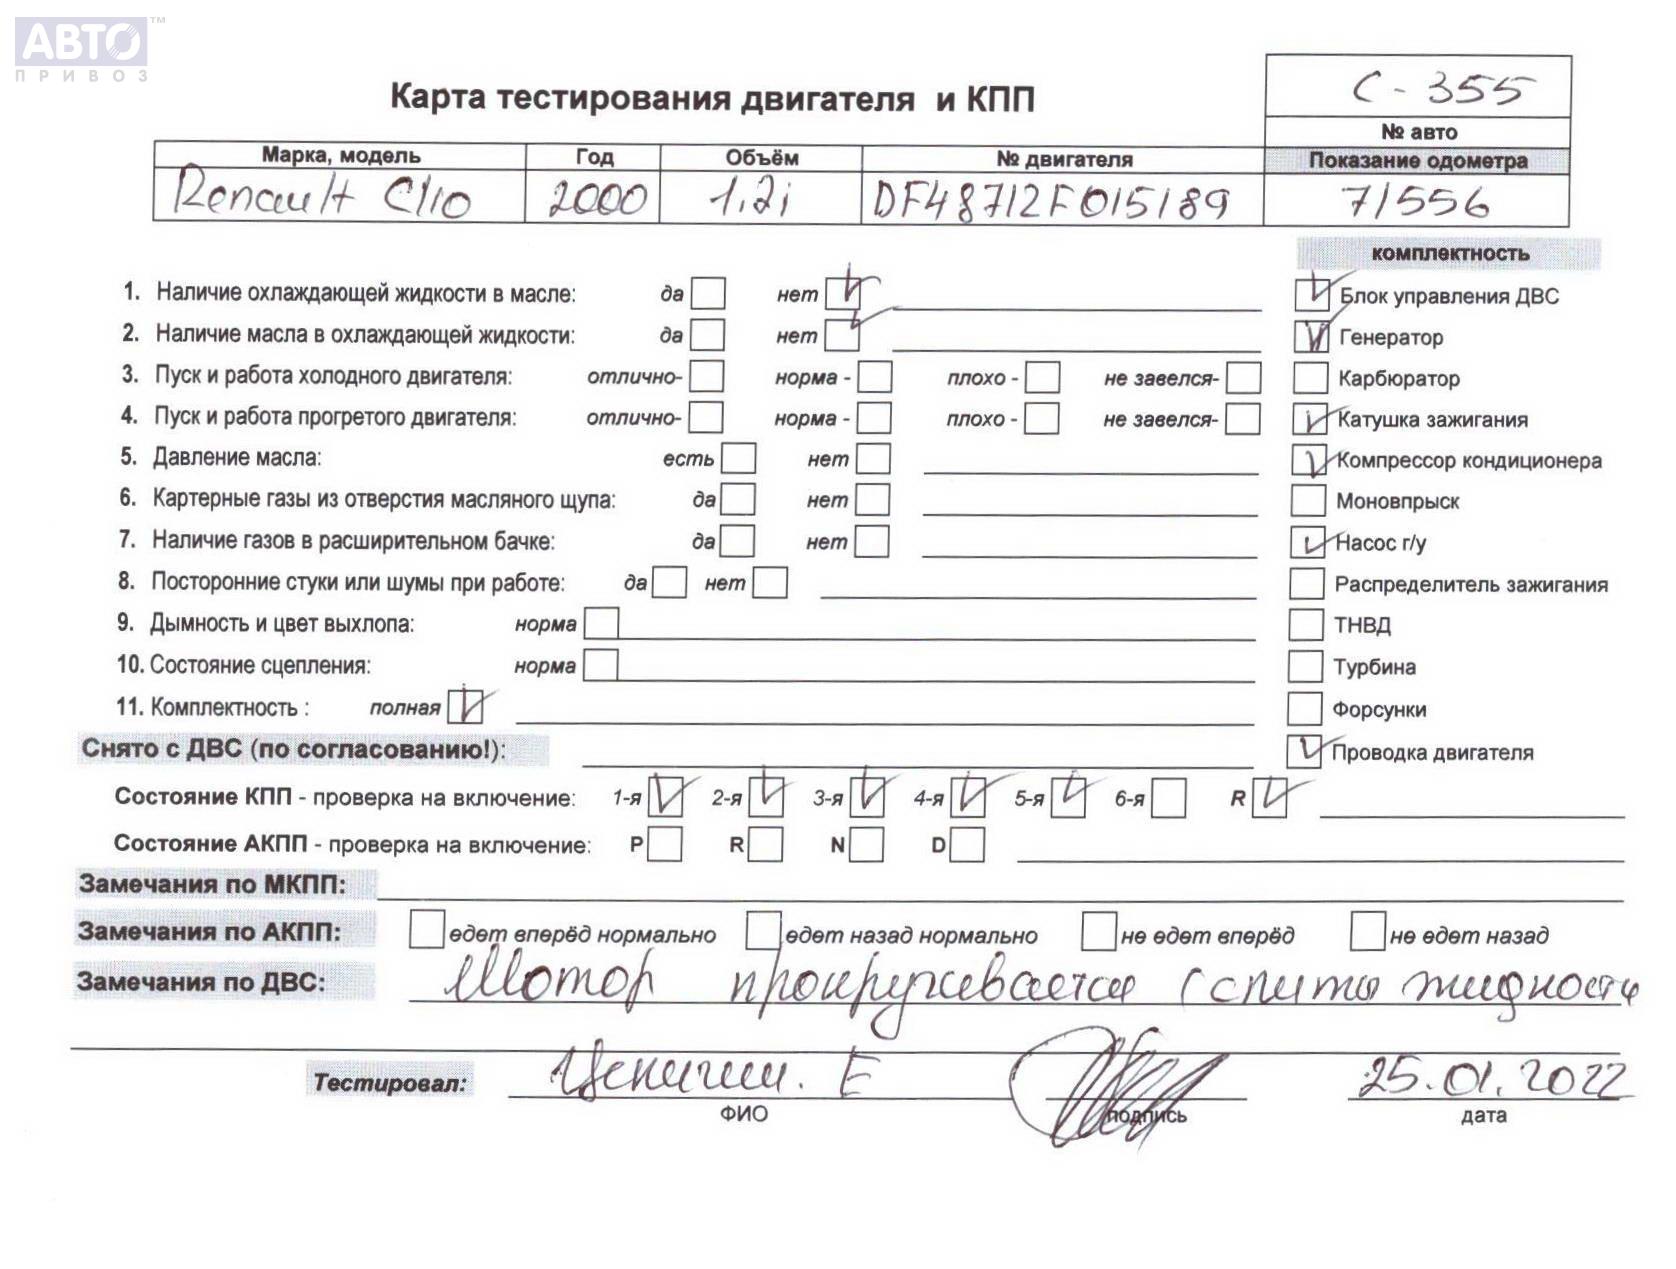 АВТО™
ПРИВОЗ
С-355
Карта тестирования двигателя и КПП
№ авто
Марка, модель Год Объём № двигателя Показание одометра
Renault Clio 2000 1,2i DF48712F015189 71556
комплектность
1. Наличие охлаждающей жидкости в масле: да нет Блок управления ДВС
2. Наличие масла в охлаждающей жидкости: да нет Генератор
3. Пуск и работа холодного двигателя: отлично- норма - плохо - не завелся- Карбюратор
4. Пуск и работа прогретого двигателя: отлично- норма - плохо - не завелся- Катушка зажигания
5. Давление масла: есть нет Компрессор кондиционера
6. Картерные газы из отверстия масляного щупа: да нет Моновпрыск
7. Наличие газов в расширительном бачке: да нет Насос г/у
8. Посторонние стуки или шумы при работе: да нет Распределитель зажигания
9. Дымность и цвет выхлопа: норма ТНВД
10. Состояние сцепления: норма Турбина
11. Комплектность : полная Форсунки
Снято с ДВС (по согласованию!): Проводка двигателя
Состояние КПП - проверка на включение: 1-я 2-я 3-я 4-я 5-я 6-я R
Состояние АКПП - проверка на включение: P R N D
Замечания по МКПП:
Замечания по АКПП: едет вперёд нормально едет назад нормально не едет вперёд не едет назад
Замечания по ДВС: Мотор прокручивается (слиты жидкости
Тестировал: Е 25.01.2022
ФИО подпись дата